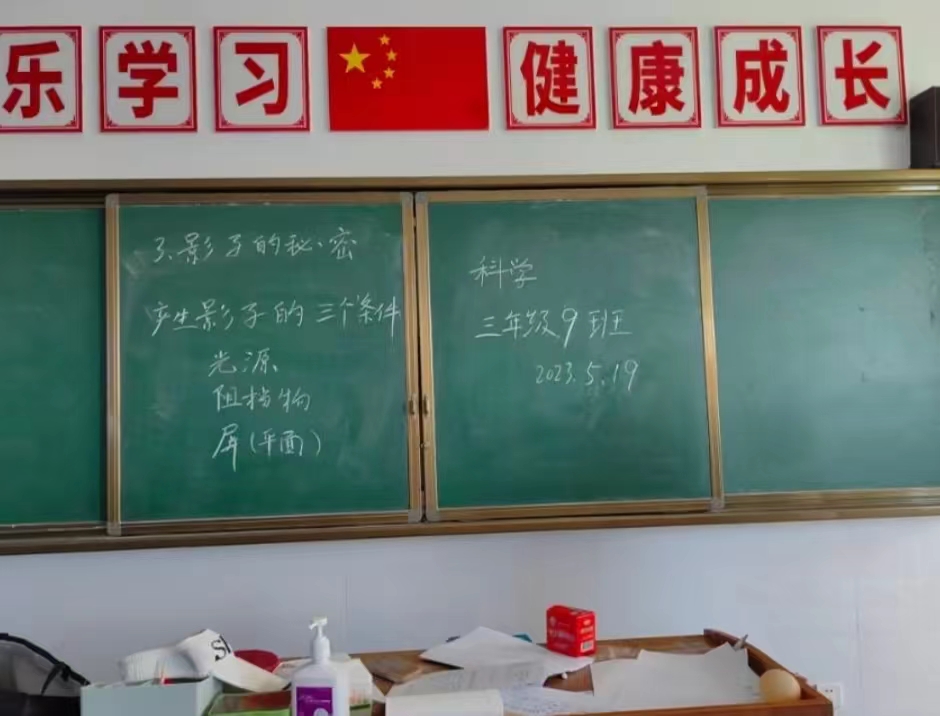 乐学习 健康成长
3.影子的秘密
产生影子的三个条件
光源
阻档物
屏(平面)
科学
三年级9班
2023.5.19